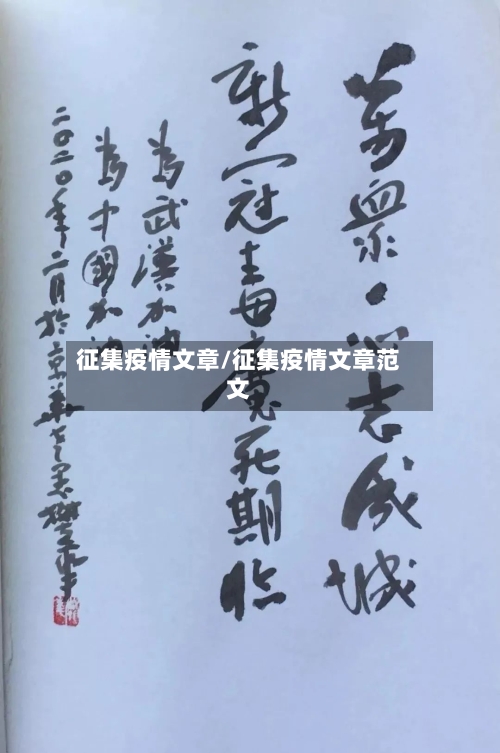 萬衆一心志成城
新冠毒魔死期临
為武漢加油
為中國加油
二〇二〇年二月於京華
征集疫情文章/征集疫情文章范
文